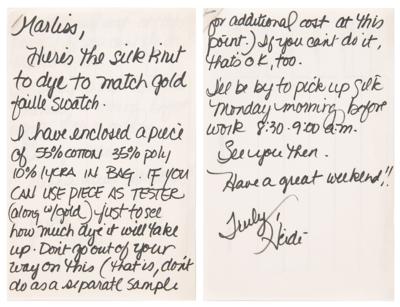 Marliss,
Here's the silk knit
to dye to match gold
faille swatch.
I have enclosed a piece
of 55% COTTON 35% poly
10% lycra IN BAG. IF YOU
CAN USE PIECE AS TESTER
(along w/gold) just to see
how much dye it will take
up. Don't go out of your
way on this (that is, don't
do as a separate sample
for additional cost at this
point.) If you can't do it,
that's O.K, too.
I'll be by to pick up silk
Monday morning before
work 8:30-9:00 a.m.
See you then.
Have a great weekend!!
Truly,
Heidi